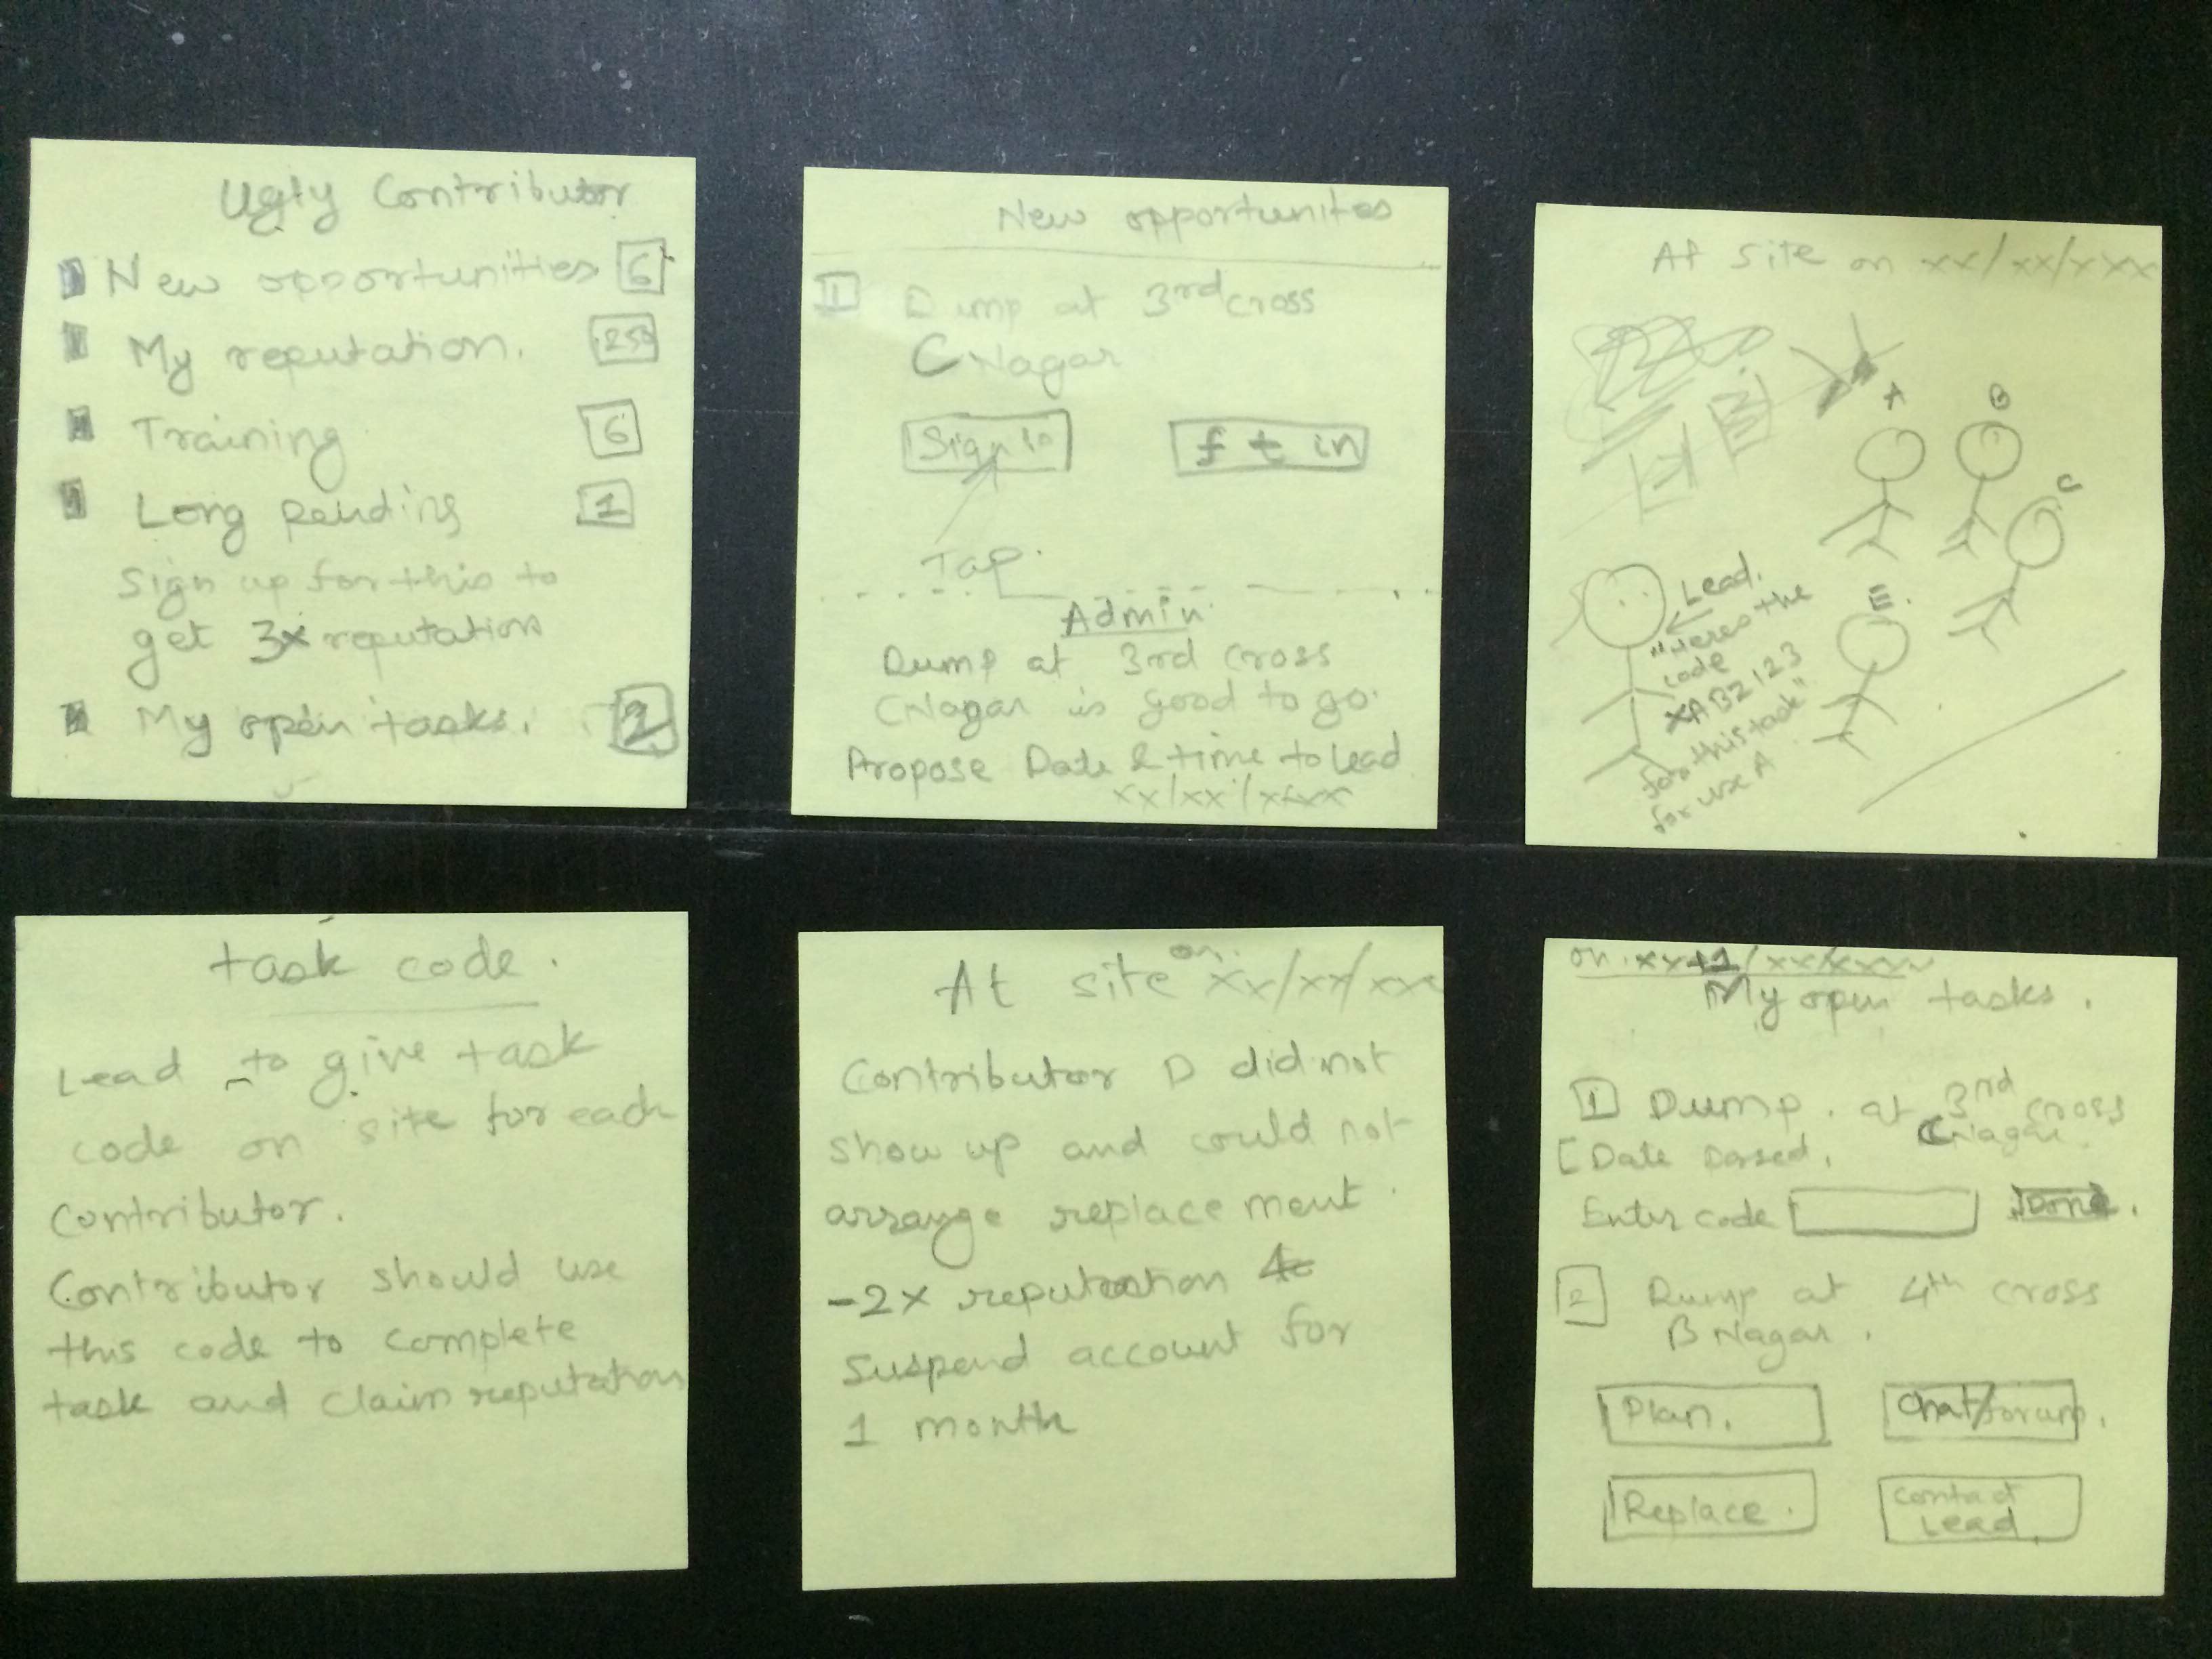 Ugly Contributor
New opportunities 6
My reputation. 250
Training 6
Long pending 1
Sign up for this to
get 3x reputation
My open tasks. 2
New opportunites
1 Dump at 3rd cross
C Nagar
Sign in f t in
Tap.
Admin
Dump at 3rd cross
CNagar is good to go.
Propose Date & time to Lead
xx/xx/xxxx
At site on xx/xx/xxx
A B
C
E.
Lead.
"Heres the
code
XABZ123
for this task"
for use A
task code.
Lead to give task
code on site for each
Contributor.
Contributor should use
this code to complete
task and claim reputation
At site on xx/xx/xxx
Contributor D did not
show up and could not
arrange replacement.
-2x reputation
Suspend account for
1 month
on xx+1/xx/xxxx
My open tasks.
1 Dump. at 3nd cross
CNagar.
[Date passed.
Enter code Done.
2 Dump at 4th cross
B Nagar.
Plan. Chat/forum.
Replace. Contact
Lead.